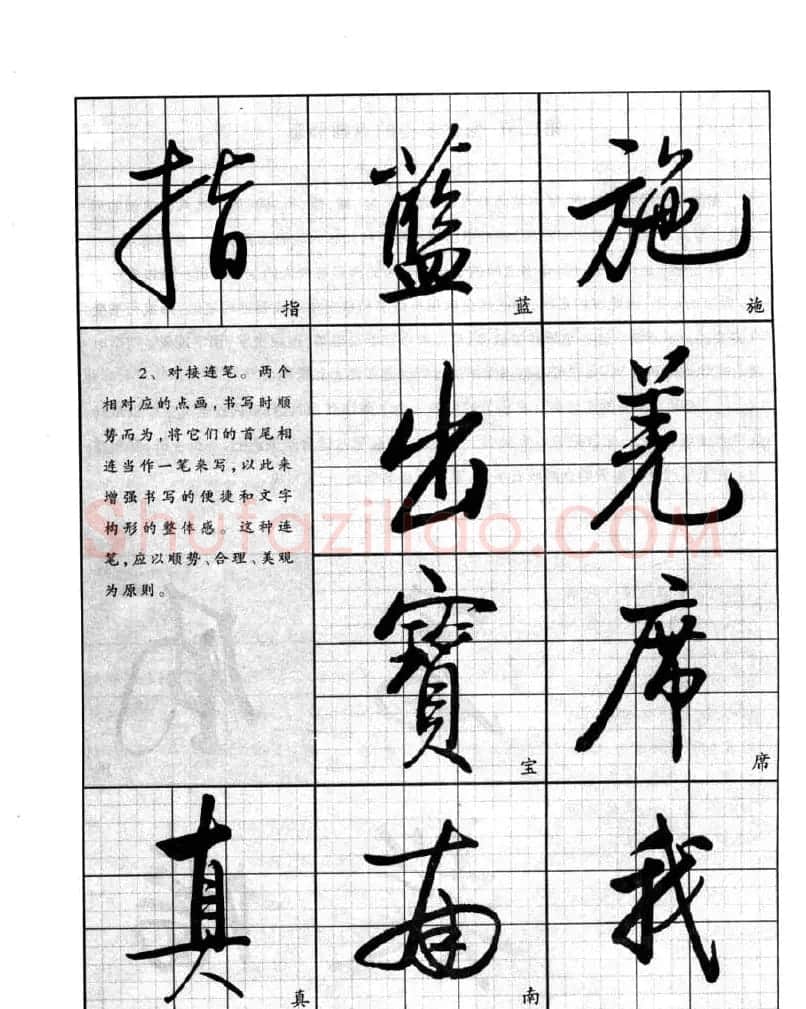 指 藍 施
指 蓝 施
2、对接连笔。两个
相对应的点画,书写时顺
势而为,将它们的首尾相
连当作一笔来写,以此来
增强书写的便捷和文字
构形的整体感。这种连
笔,应以顺势、合理、美观
为原则。
出 羌
寶 席
宝 席
真 南 我
真 南
Shufaziliao.COM